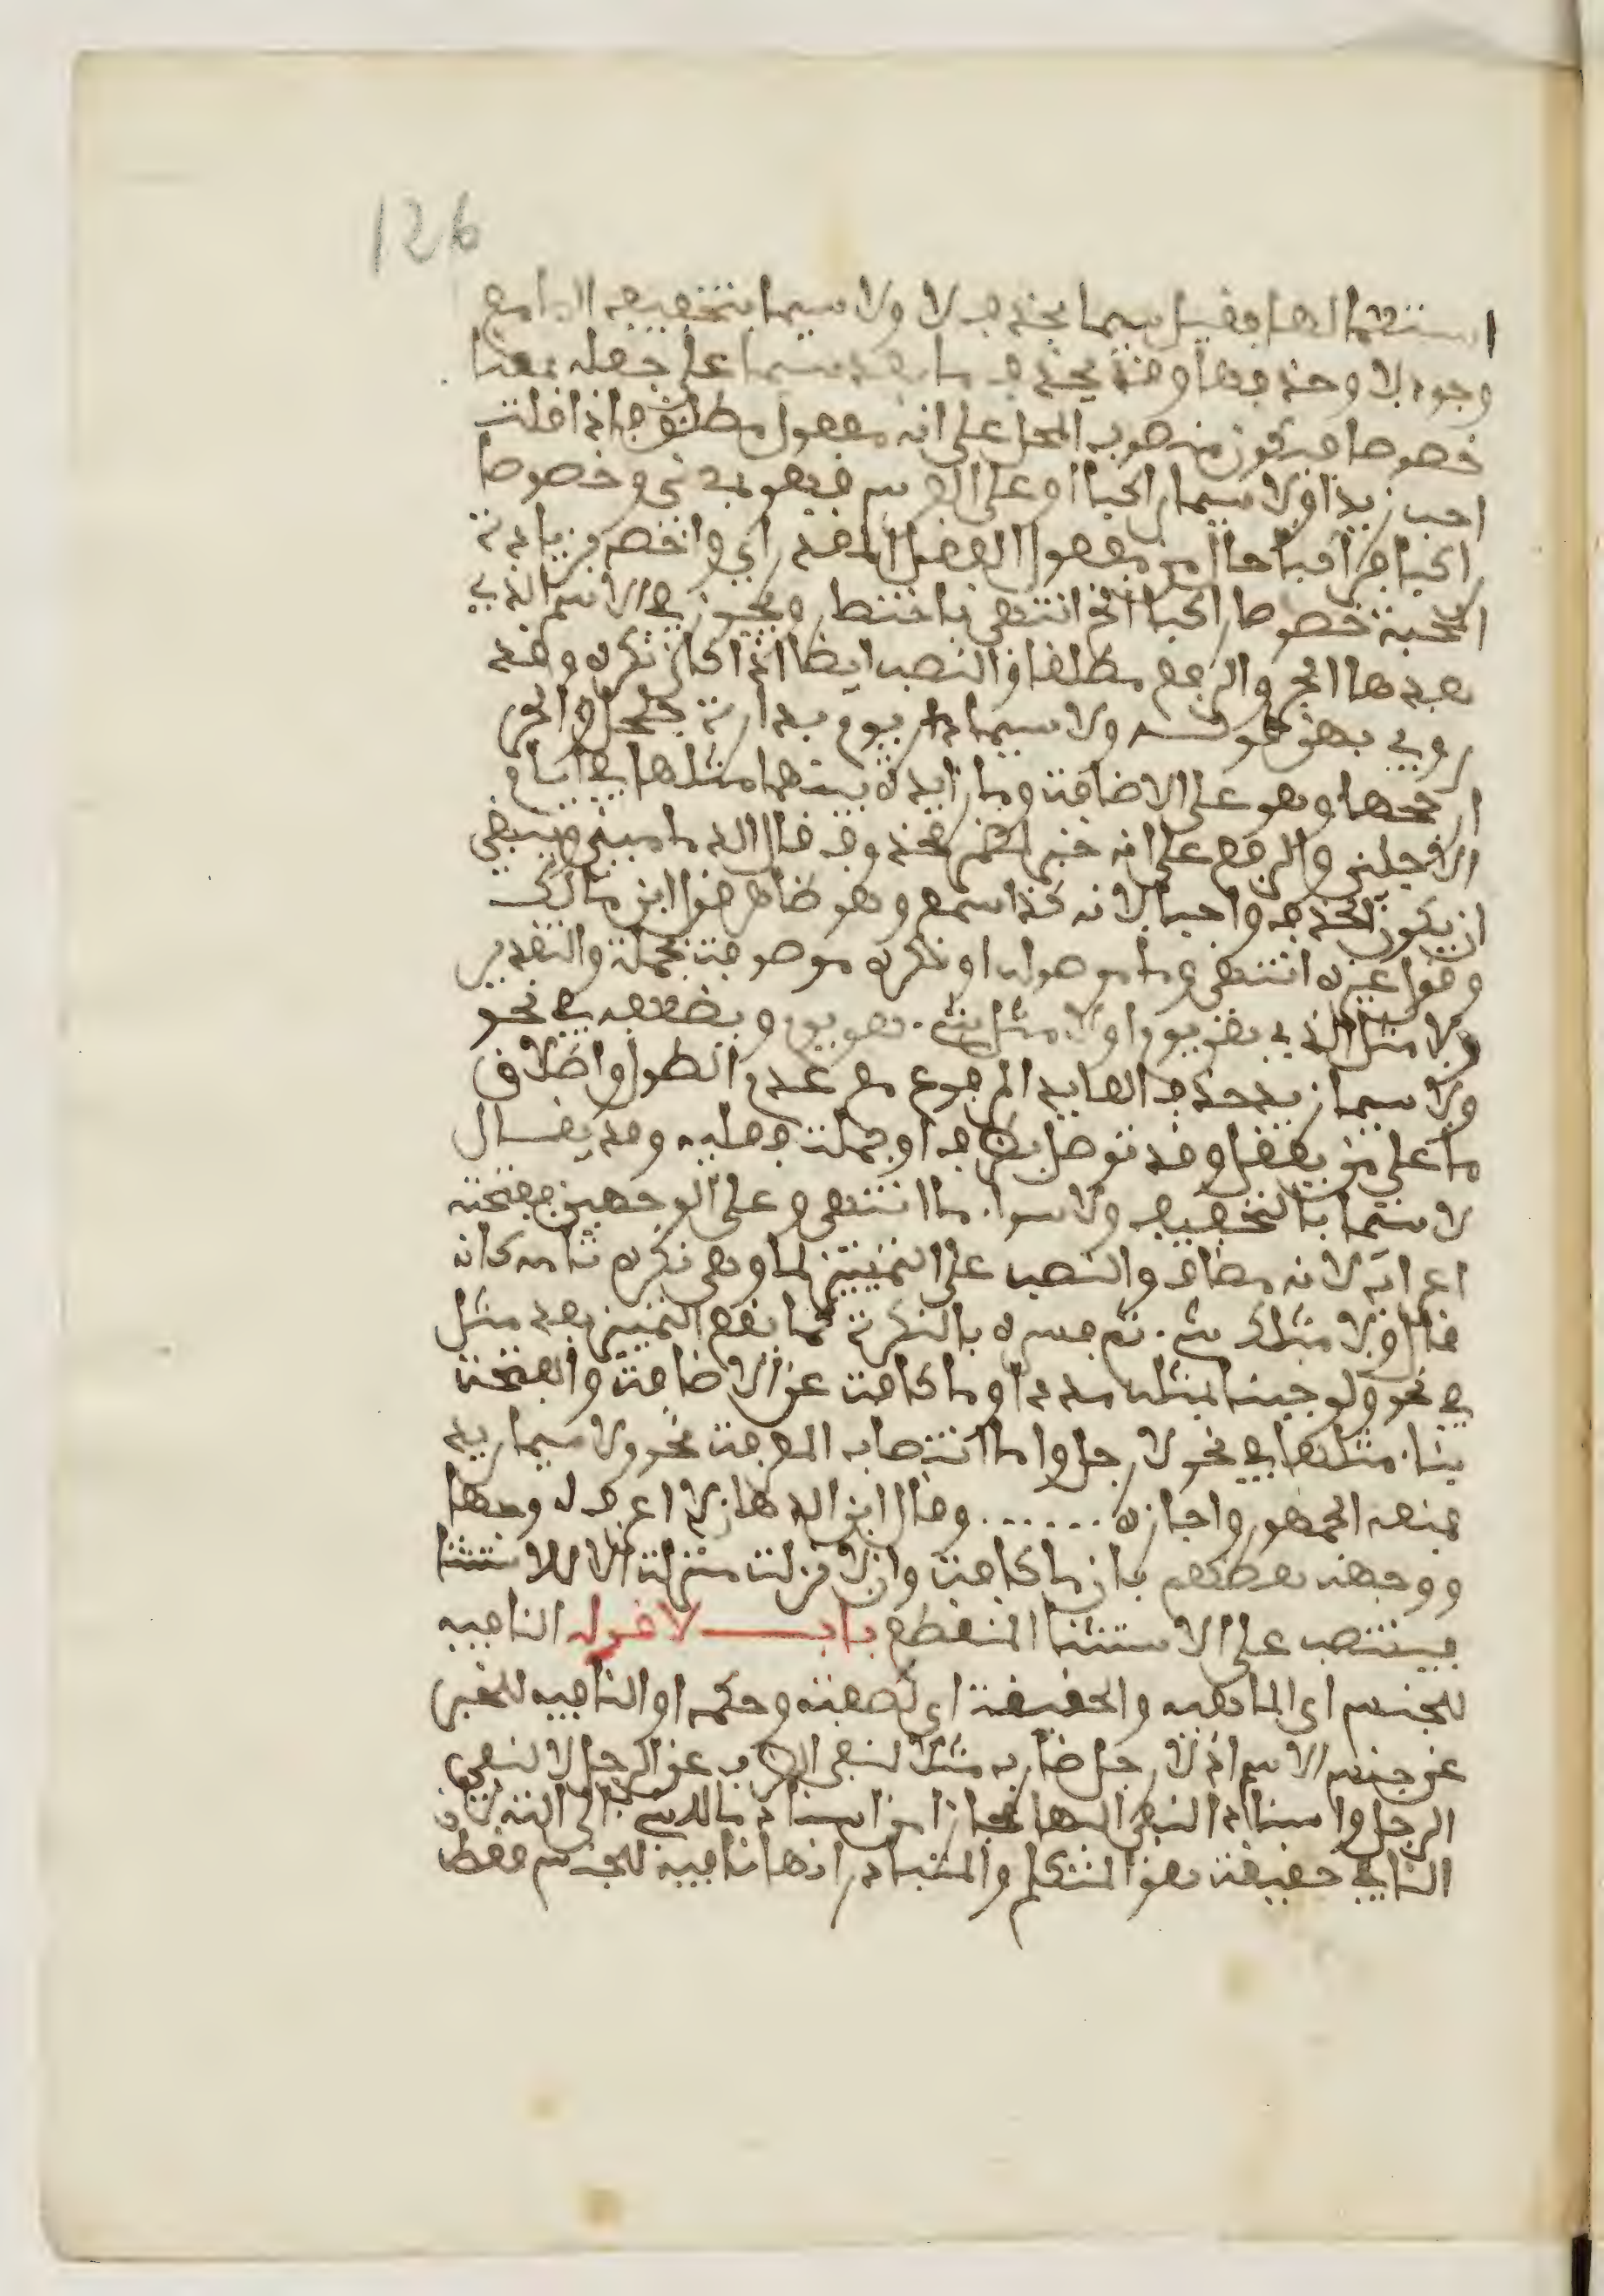 126
استعمالها فقيل سيما بحذف لا ولا سيما بتخفيف اليا مع
وجود لا وحذفها وقد يحذف ما بعد سيما على جعله بمعنا
خصوصا فيكون منصوب المحل على انه مفعول مطلق فاذا قلت
احب زيدا ولا سيما راكبا او على الفرس فهو بمعنى وخصوصا
راكبا فراكبا حال من مفعول الفعل المقدر اي واخصه بزيادة
المحبة خصوصا راكبا الخ انتهى باختصا ويجوز في الاسم الذي
بعدها الجر والرفع مطلقا والنصب ايضا اذا كان نكرة وقد
روي بهن قوله ولا سيما يوم بدارة جلجل والجر
ارجحها وهو على الاضافة وما زايدة بينهما مثلها في ايما
الاجلين والرفع على انه خبر لمضمر محذوف قال الدماميني وينبغي
ان يكون الحذف واجبا لانه كذا سمع وهو ظاهر قول ابن مالك
وقول غيره انتهى وما موصولة او نكرة موصوفة بجملة والتقدير
ولا مثل الذي هو يوم او لا مثل شيء هو يوم ويضعفه في نحو
ولا سيما زيد حذف العايد المرفوع مع عدم الطول واطلاق
ما على من يعقل وقد توصل بظرف او جملة فعلية وقد يقال
لا سيما بالتخفيف ولا سوا ما انتهى وعلى الوجهين ففتحة
اعرابه لانه مضاف والنصب على التمييز لما وهي نكرة تامة كانه
قال ولا مثل شيء ثم فسره بالنكرة كما يقع التمييز بعد مثل
في نحو ولو جينا بمثله مددا وما كافة عن الاضافة والفتحة
بنا مثلها في نحو لا رجل واما انتصاب المعرفة نحو ولا سيما زيد
فمنعه الجمهور واجازه ....... وقال ابن الدهان لا اعرف له وجها
ووجهه بعضهم بان ما كافة وان لا نزلت منزلة الا للاستثنا
فينتصب على الاستثنا المنقطع باب لا قوله النافية
للجنس اي الماهية والحقيقة اي لصفته وحكمه او النافية للخبر
عن جنس الاسم اذ لا رجل ضارب مثلا لنفي الضرب عن الرجل لا لنفي
الرجل واسناد النفي اليها مجاز من اسناد ما للشيء الى الته لان
النافي حقيقة هو المتكلم والمتبادر انها نافية للجنس فقط